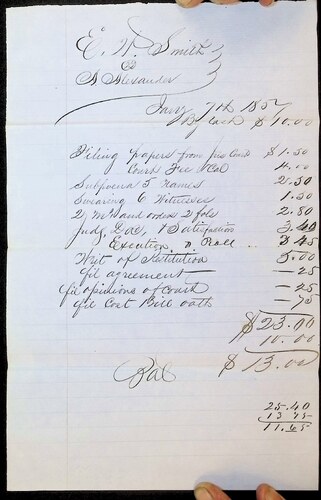 E. W. Smith
&
A Alexander
Jany 7th 185
By Cash $10.00
Filing papers from Jus Court $1.50
Court Fee Cal 4.00
Subpoena 5 Names 2.50
Swearing 6 Witnesses 1.50
2 and orders 2 fols 2.80
Judg. & Satisfaction 3.40
Execution Ret 3.45
Writ of Restitution 3.00
fil agreement — 25
fil opinions of Court — 25
fil Cost Bill oath — 75
$23.00
10.00
Bal $13.00
25.40
13 75
11.65